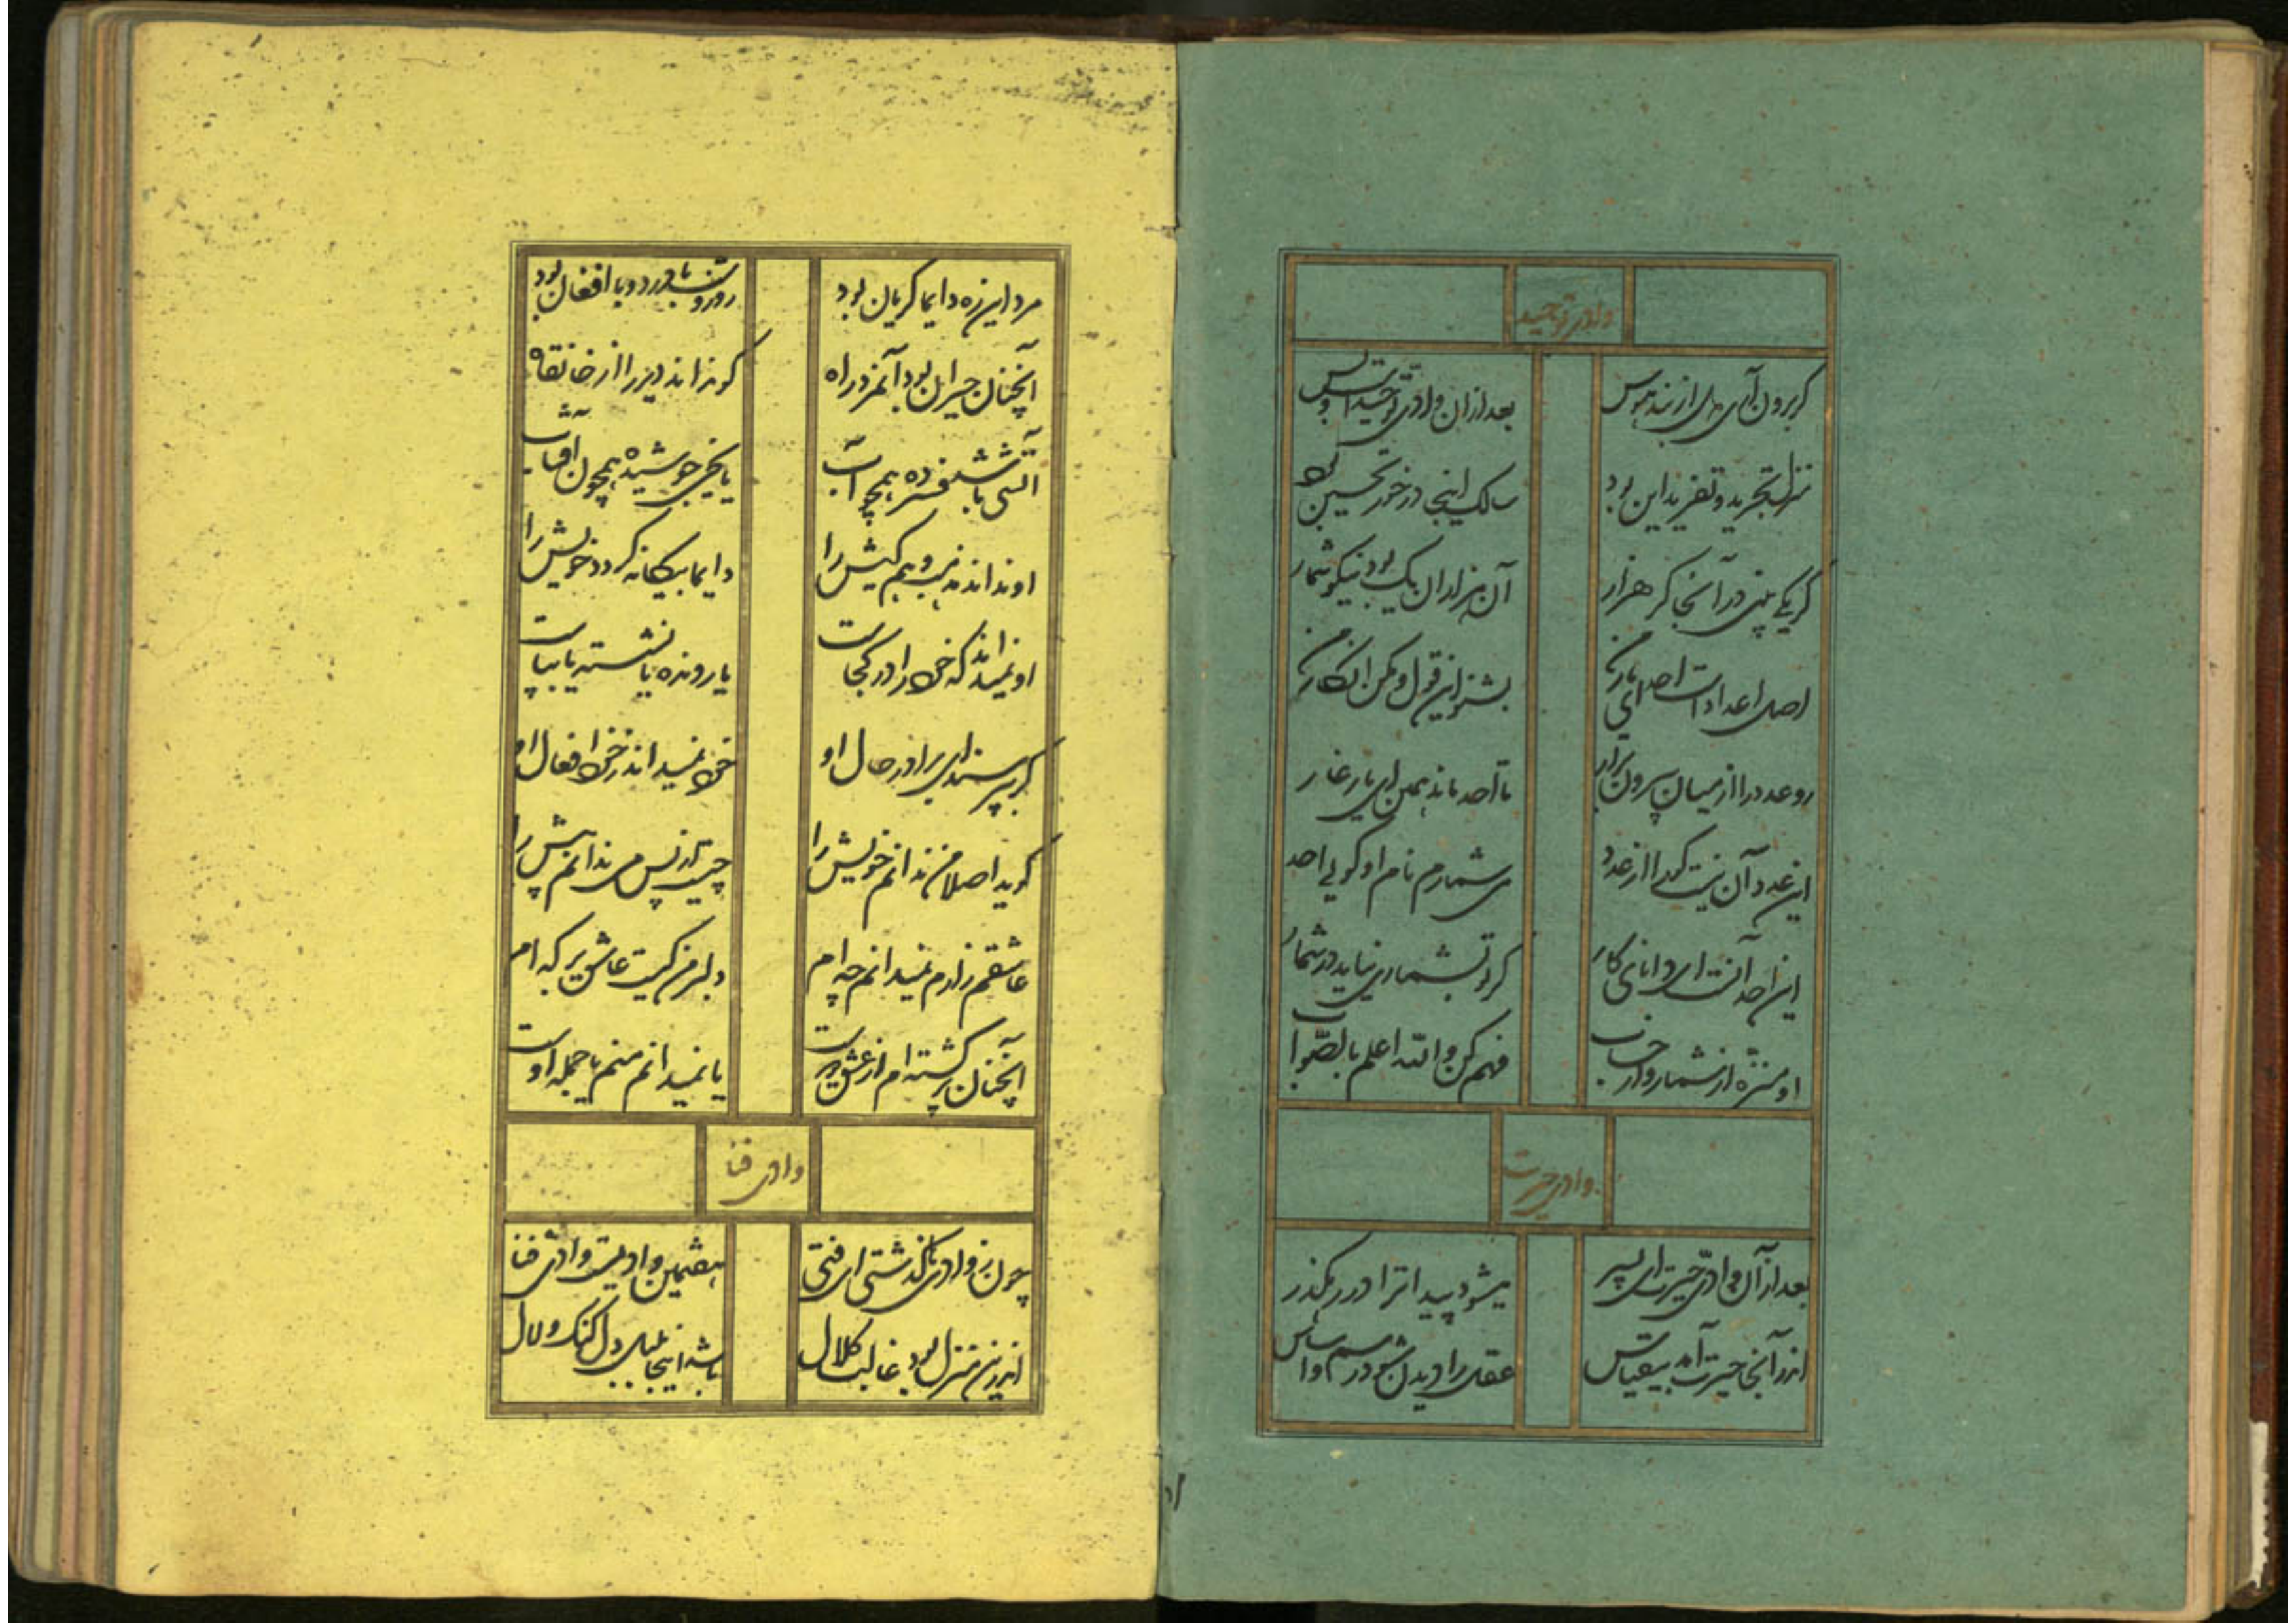 وادی توحید
گر برون آی دمی از بند هوس
بعد ازان وادی توحیدست و بس
منزل تجرید و تفرید این بود
سالک اینجا در خور تحسین بود
گر یکی بینی در آنجا گر هزار
آن هزاران یک بود نیکو شمار
اصل اعداد است احد ای یار من
بشنو این قول و مکن انکار من
رو عدد را از میان بیرون برار
تا احد ماند همین ای یار غار
این عدد آن نیست کورا از عدد
می شمارم نام او گویی احد
این احد آنست ای دانای کار
کو تو بشماری نیاید در شمار
او منزه از شمار و از حساب
فهم کن والله اعلم بالصواب
وادی حیرت
بعد از آن وادی حیرت ای پسر
میشود پیدا ترا در رهگذر
اندر آنجا حیرت آمد بیقیاس
عقل را دیدن شود رسم و اساس
مرد این ره دایما گریان بود
روز و شب با درد و با افغان بود
آنچنان حیران بود آنمرد راه
کو نداند دیر را از خانقاه
آتشی باشد فسرده همچو آب
یا یخی جوشیده همچون آفتاب
او نداند مذهب و هم کیش را
دایما بیگانه گردد خویش را
او نمیداند که خود را در کجاست
یا رونده یا نشسته یا بپاست
گر بپرسند ای برادر حال او
خود نمیداند ز خود افعال او
گوید اصلا من ندانم خویش را
چیست از پس می ندانم پیش را
عاشقم زارم نمیدانم چه ام
دلبر من کیست عاشق بر که ام
آنچنان سرگشته ام از عشق دوست
یا نمیدانم منم یا جمله اوست
وادی فنا
چون ز وادی بگذشتی ای فتی
هفتمین وادیست وادی فنا
اندرین منزل بود غالب کلال
باشد اینجا بلبل دل گنگ و لال